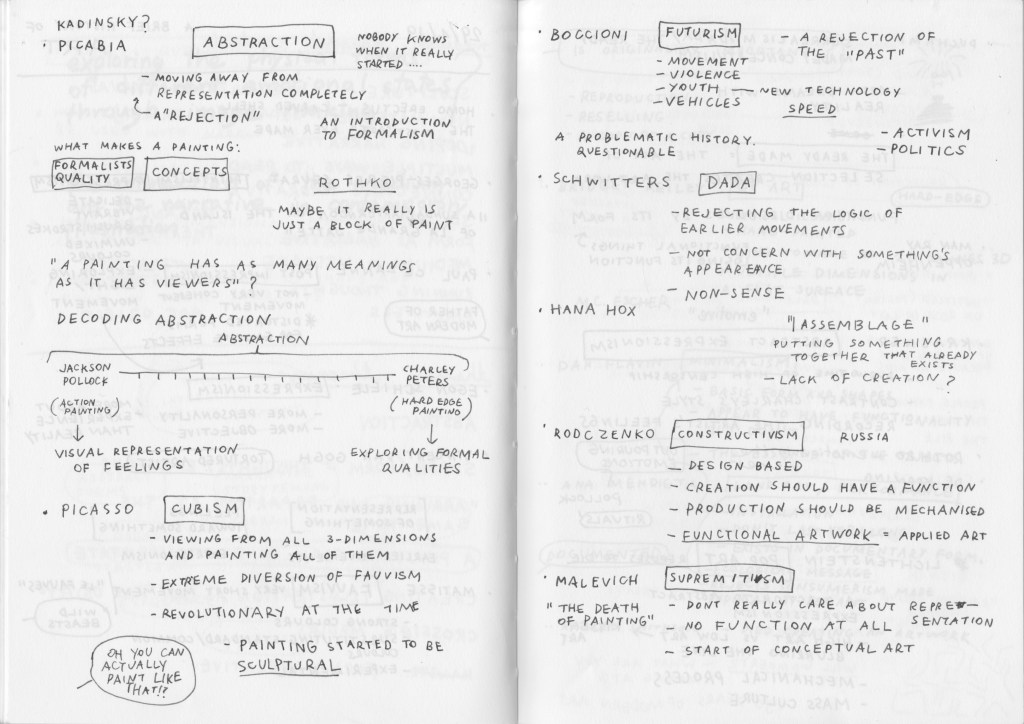 KADINSKY?
• PICABIA
ABSTRACTION
NOBODY KNOWS
WHEN IT REALLY
STARTED ....
- MOVING AWAY FROM
REPRESENTATION COMPLETELY
- A "REJECTION"
AN INTRODUCTION
TO FORMALISM
WHAT MAKES A PAINTING:
FORMALISTS
QUALITY
CONCEPTS
ROTHKO
MAYBE IT REALLY IS
JUST A BLOCK OF PAINT
"A PAINTING HAS AS MANY MEANINGS
AS IT HAS VIEWERS" ?
DECODING ABSTRACTION
ABSTRACTION
JACKSON
POLLOCK
CHARLEY
PETERS
(ACTION
PAINTING)
(HARD EDGE
PAINTING)
VISUAL REPRESENTATION
OF FEELINGS
EXPLORING FORMAL
QUALITIES
• PICASSO
CUBISM
- VIEWING FROM ALL 3-DIMENSIONS
AND PAINTING ALL OF THEM
- EXTREME DIVERSION OF FAUVISM
- REVOLUTIONARY AT THE TIME
- PAINTING STARTED TO BE
SCULPTURAL
OH YOU CAN
ACTUALLY
PAINT LIKE
THAT!?
• BOCCIONI
FUTURISM
- A REJECTION OF
THE "PAST"
- MOVEMENT
- VIOLENCE
- YOUTH — NEW TECHNOLOGY
- VEHICLES
SPEED
A PROBLEMATIC HISTORY.
QUESTIONABLE
- ACTIVISM
- POLITICS
• SCHWITTERS
DADA
- REJECTING THE LOGIC OF
EARLIER MOVEMENTS
- NOT CONCERN WITH SOMETHING'S
APPEARENCE
- NON-SENSE
• HANA HOX
"ASSEMBLAGE"
PUTTING SOMETHING
TOGETHER THAT ALREADY
EXISTS
- LACK OF CREATION ?
• RODCZENKO
CONSTRUCTIVISM
RUSSIA
- DESIGN BASED
- CREATION SHOULD HAVE A FUNCTION
- PRODUCTION SHOULD BE MECHANISED
- FUNCTIONAL ARTWORK = APPLIED ART
• MALEVICH
SUPREMITISM
"THE DEATH
OF PAINTING"
- DONT REALLY CARE ABOUT REPRE-
SENTATION
- NO FUNCTION AT ALL
- START OF CONCEPTUAL ART